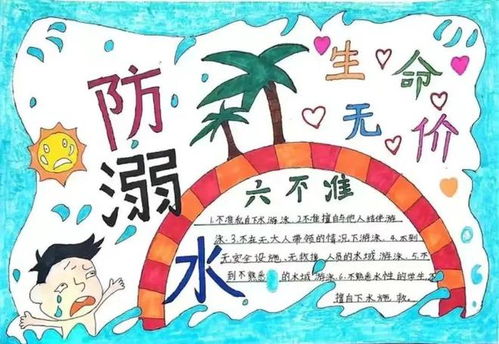 防
溺
水
生命
无价
六不准
1.不准私自下水游泳.2不准擅自与他人结伴游
泳.3.不在无大人带领的情况下游泳.4.不到
无安全设施、无救援人员的水域游泳.5.不
到不熟悉的水域游泳.6.不熟悉水性的学生不
擅自下水施救.